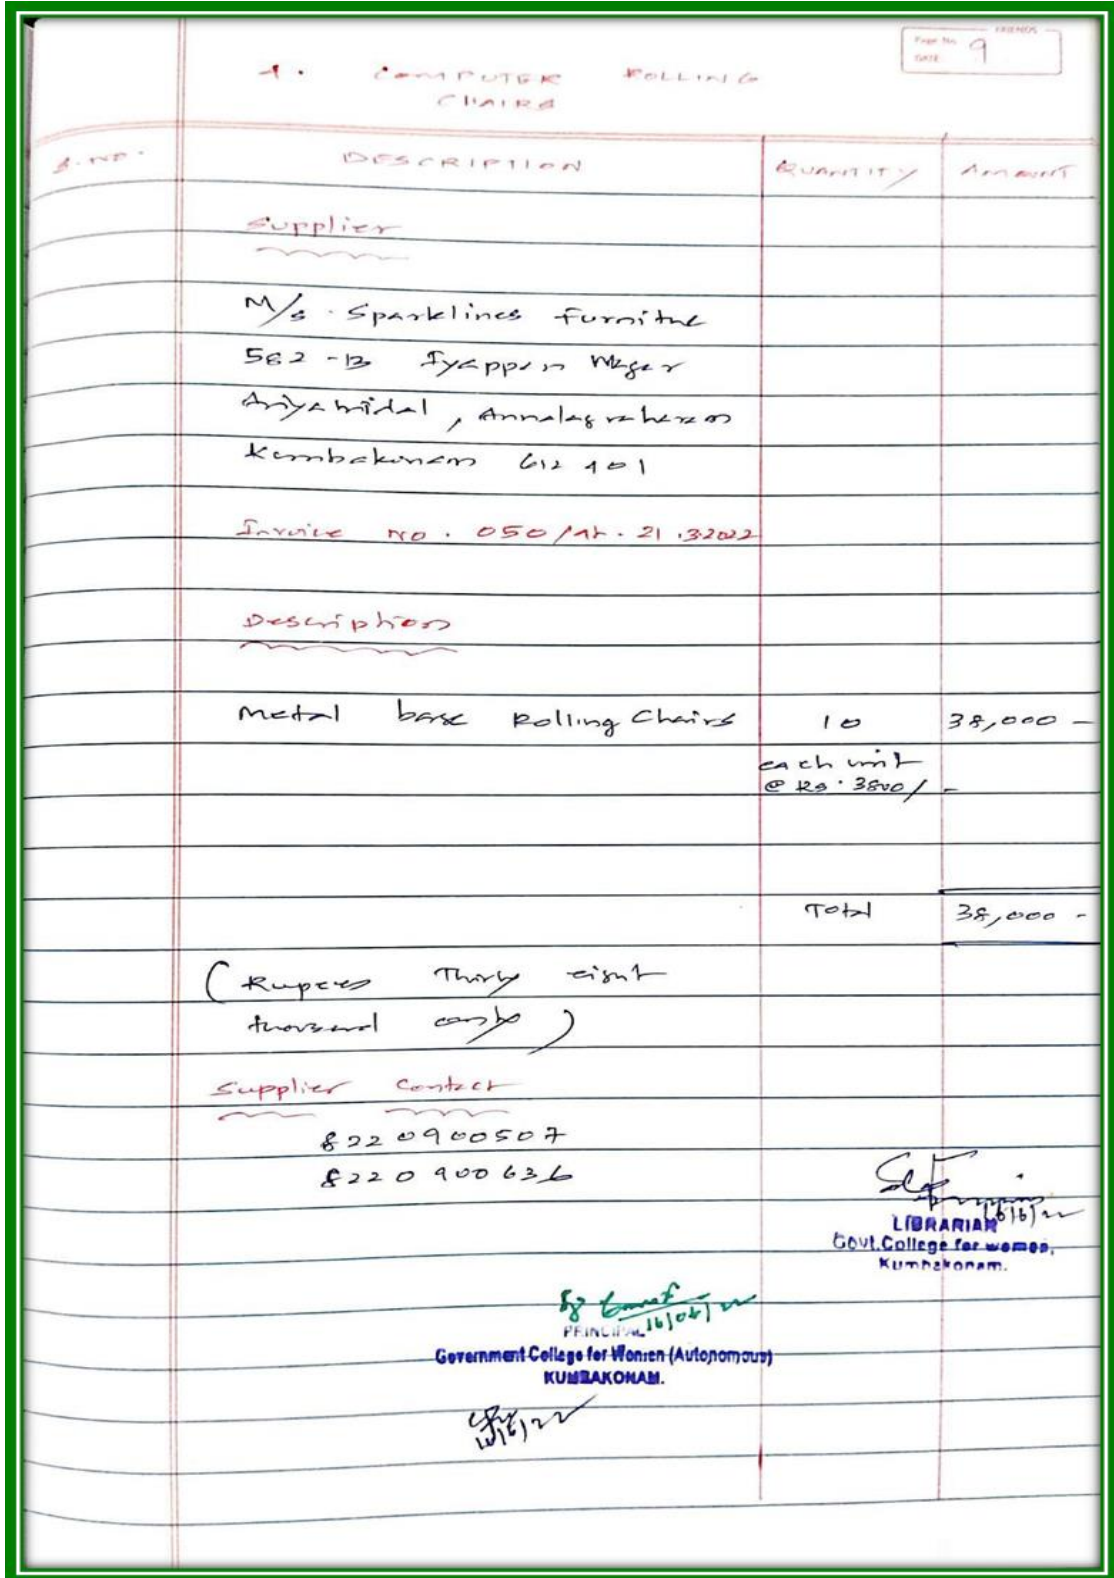 FRIENDS
Page No. 9
DATE
4. COMPUTER ROLLING
CHAIRS
S.NO. DESCRIPTION QUANTITY AMOUNT
Supplier
M/s. Sparklines Furniture
562-B Iyappan Nagar
Ariyathidal, Annalagraharam
Kumbakonam 612 401
Invoice No. 050/dt. 21.3.2022
Description
Metal base Rolling Chairs 10 38,000 -
each unit
@ Rs. 3800/-
Total 38,000 -
(Rupees Thirty eight
thousand only)
Supplier Contact
8220900507
8220900636
16/6/22
LIBRARIAN
Govt.College for women,
Kumbakonam.
16/06/22
PRINCIPAL
Government College for Women (Autonomous)
KUMBAKONAM.
16/6/22